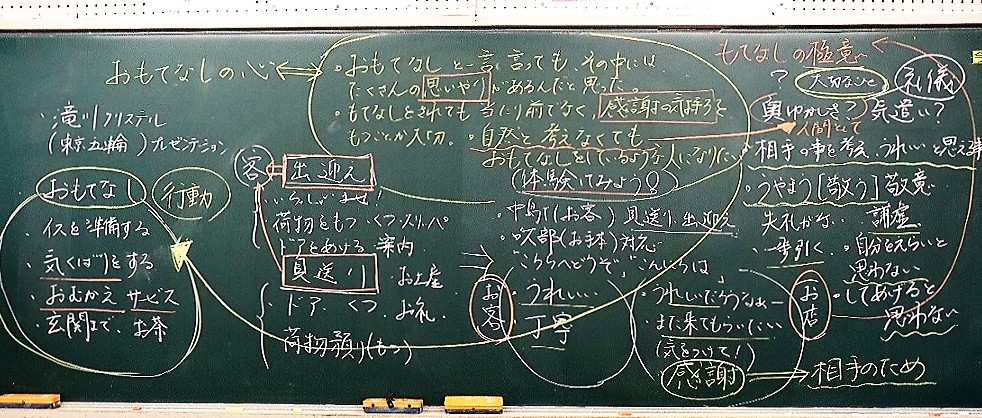 おもてなしの心
・おもてなしと一言で言っても、その中には
たくさんの思いやりがあるんだと思った。
・もてなしをされても当たり前でなく、感謝の気持ちを
もつことが大切。・自然と考えなくても
おもてなしをしているような人になりたい
もてなしの極意
?
大切なこと
礼儀
奥ゆかしさ? 気遣い?
人間として
相手の事を考え、うれしいと思える事
・うやまう[敬う]敬意
失礼がない 謙虚
・一歩引く ・自分をえらいと
思わない
・してあげると
思わない
・滝川クリステル
(東京五輪)プレゼンテーション
おもてなし
行動
・イスを準備する
・気くばりをする
・おむかえ サービス
・玄関まで、お茶
客
出迎え
・いらっしゃいませ!
・荷物をもつ・くつ・スリッパ
・ドアをあける 案内
見送り
・お土産
・ドア、くつ、お礼
荷物預り(もつ)
(体験してみよう!)
・中島(お客) 見送り・出迎え
(お手本)対応
「こちらへどうぞ」「こんにちは」
お客
・うれしい
・丁寧
・うれしいだろうなぁー
・また来てもらいたい
(気をつけて!)
感謝
お店
相手のため